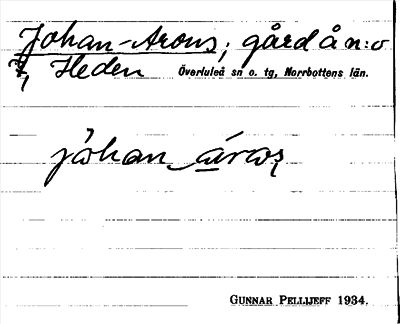 Johan-Arons; gård å n:o
3, Heden Överluleå sn o. tg, Norrbottens län.
GUNNAR PELLIJEFF 1934.